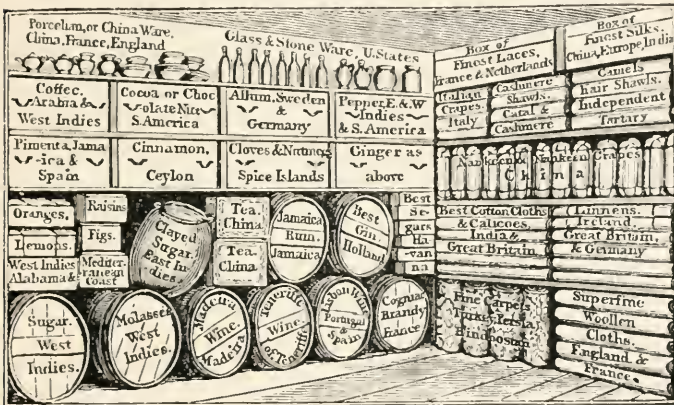 Porcelain, or China Ware,
China, France, England
Glass & Stone Ware, U. States
Coffee.
Arabia &
West Indies
Cocoa or Choc
olate Nuts
S. America
Allum, Sweden
&
Germany
Pepper, E. & W
Indies
& S. America
Pimenta, Jama
-ica &
Spain
Cinnamon,
Ceylon
Cloves & Nutmegs
Spice Islands
Ginger as
above
Oranges,
Lemons.
West Indies
Alabama &
Raisins
Figs.
Mediter-
ranean
Coast
Clayed
Sugar.
East In
dies.
Tea.
China.
Tea.
China.
Jamaica
Rum.
Jamaica
Best
Gin.
Holland
Best
Se-
gars
Ha
-van
na
Sugar.
West
Indies.
Molasses
West
Indies.
Madeira
Wine.
Madeira
Teneriffe
Wine.
Of Teneriffe
Lisbon Wine
Portugal
&
Spain
Cogniac
Brandy
France
Box of
Finest Laces,
France & Netherlands
Box of
Finest Silks.
China, Europe, India
Italian
Crapes.
Italy
Cashmere
Shawls.
&
Cashmere
Camels
hair Shawls.
Independent
Tartary
Nankeen & Nankeen Crapes
China
Best Cotton Cloths
& Calicoes,
India &
Great Britain
Linnens.
Ireland.
Great Britain,
& Germany
Fine Carpets
Turkey, Persia,
Hindostan
Superfine
Woollen
Cloths.
England &
France.